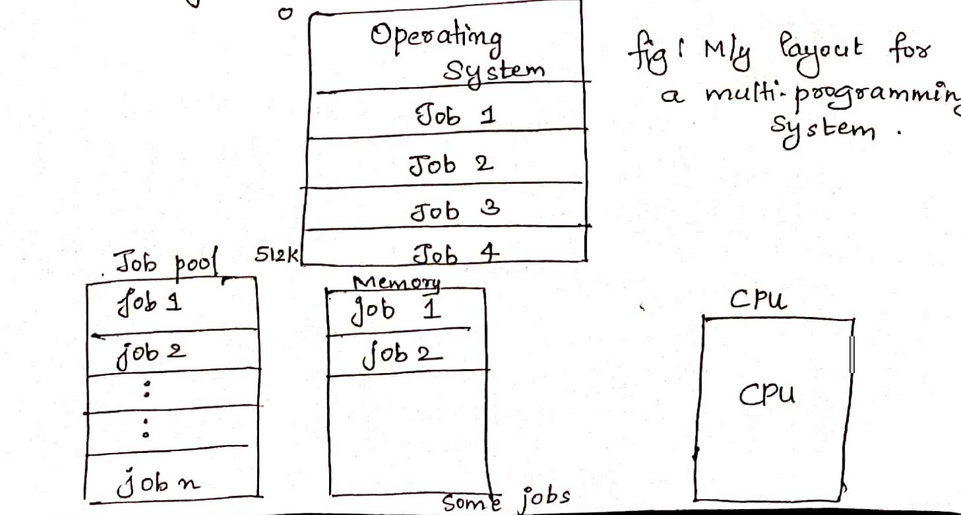 0
Operating
System
Job 1
Job 2
Job 3
512K
Job 4
fig : M/y layout for
a multi-programming
System .
Job pool
Job 1
job 2
:
:
job n
Memory
job 1
job 2
Some jobs
CPU
CPU